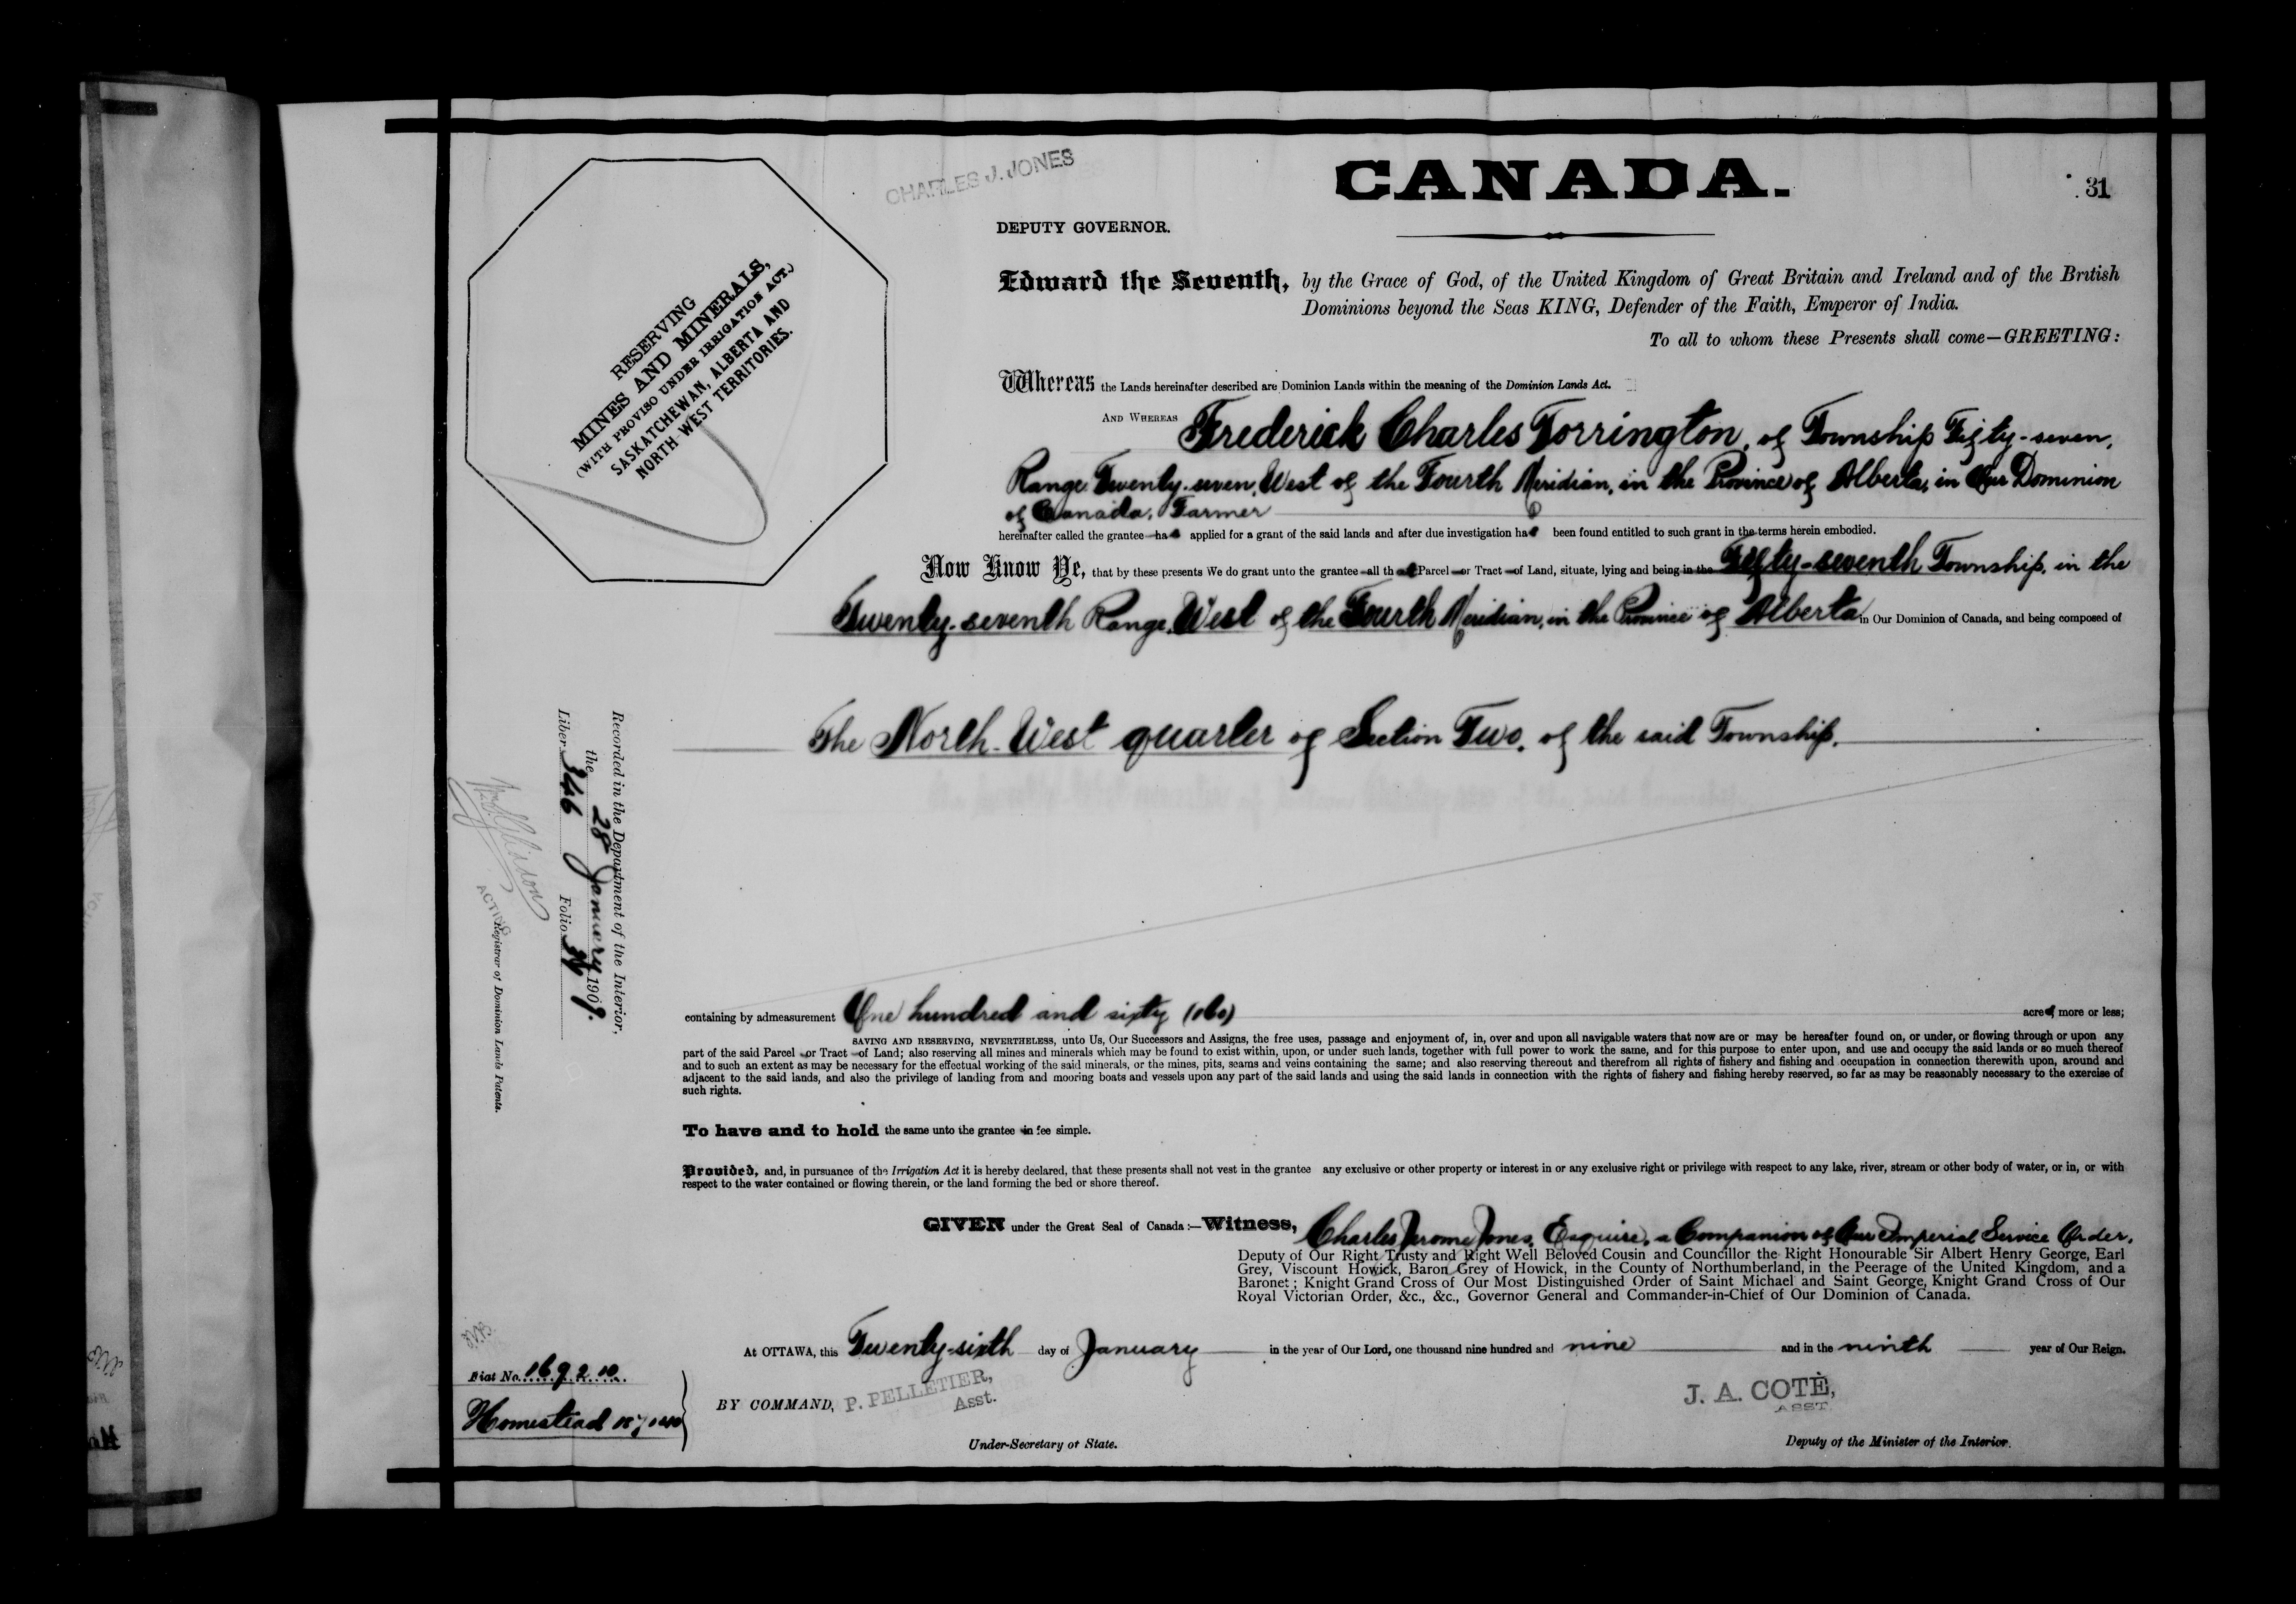 CHARLES J. JONES
CANADA.
31
DEPUTY GOVERNOR.
Edward the Seventh, by the Grace of God, of the United Kingdom of Great Britain and Ireland and of the British
Dominions beyond the Seas KING, Defender of the Faith, Emperor of India.
To all to whom these Presents shall come—GREETING:
RESERVING
MINES AND MINERALS,
(WITH PROVISO UNDER IRRIGATION ACT.)
SASKATCHEWAN, ALBERTA AND
NORTH WEST TERRITORIES.
Whereas the Lands hereinafter described are Dominion Lands within the meaning of the Dominion Lands Act.
AND WHEREAS Frederick Charles Torrington, of Township Fifty-seven,
Range Twenty-seven, West of the Fourth Meridian, in the Province of Alberta, in Our Dominion
of Canada, Farmer
hereinafter called the grantee has applied for a grant of the said lands and after due investigation has been found entitled to such grant in the terms herein embodied.
Now Know Ye, that by these presents We do grant unto the grantee all that Parcel or Tract of Land, situate, lying and being in the Fifty-seventh Township, in the
Twenty-seventh Range, West of the Fourth Meridian, in the Province of Alberta in Our Dominion of Canada, and being composed of
The North-West quarter of Section Two, of the said Township.
Recorded in the Department of the Interior,
the 28 January 1909.
Liber 346 Folio
ACTING
Registrar of Dominion Lands Patents.
containing by admeasurement One hundred and sixty (160) acres more or less;
SAVING AND RESERVING, NEVERTHELESS, unto Us, Our Successors and Assigns, the free uses, passage and enjoyment of, in, over and upon all navigable waters that now are or may be hereafter found on, or under, or flowing through or upon any
part of the said Parcel or Tract of Land; also reserving all mines and minerals which may be found to exist within, upon, or under such lands, together with full power to work the same, and for this purpose to enter upon, and use and occupy the said lands or so much thereof
and to such an extent as may be necessary for the effectual working of the said minerals, or the mines, pits, seams and veins containing the same; and also reserving thereout and therefrom all rights of fishery and fishing and occupation in connection therewith upon, around and
adjacent to the said lands, and also the privilege of landing from and mooring boats and vessels upon any part of the said lands and using the said lands in connection with the rights of fishery and fishing hereby reserved, so far as may be reasonably necessary to the exercise of
such rights.
To have and to hold the same unto the grantee in fee simple.
Provided, and, in pursuance of the Irrigation Act it is hereby declared, that these presents shall not vest in the grantee any exclusive or other property or interest in or any exclusive right or privilege with respect to any lake, river, stream or other body of water, or in, or with
respect to the water contained or flowing therein, or the land forming the bed or shore thereof.
GIVEN under the Great Seal of Canada:—Witness, Charles Jerome Jones, Esquire, a Companion of Our Imperial Service Order,
Deputy of Our Right Trusty and Right Well Beloved Cousin and Councillor the Right Honourable Sir Albert Henry George, Earl
Grey, Viscount Howick, Baron Grey of Howick, in the County of Northumberland, in the Peerage of the United Kingdom, and a
Baronet; Knight Grand Cross of Our Most Distinguished Order of Saint Michael and Saint George, Knight Grand Cross of Our
Royal Victorian Order, &c., &c., Governor General and Commander-in-Chief of Our Dominion of Canada.
At OTTAWA, this Twenty-sixth day of January in the year of Our Lord, one thousand nine hundred and nine and in the ninth year of Our Reign.
Fiat No. 169210
Homestead
BY COMMAND, P. PELLETIER,
Asst.
Under-Secretary of State.
J. A. COTÉ,
ASST.
Deputy of the Minister of the Interior.